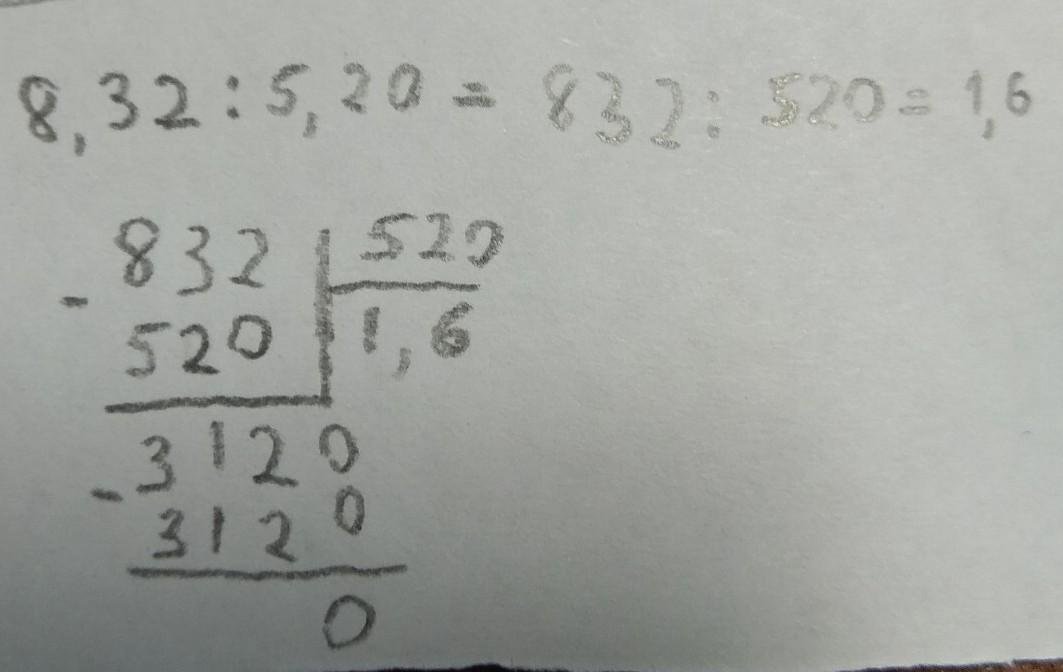 8,32 : 5,20 = 832 : 520 = 1,6
832 | 520
- 520 | 1,6
3120
- 3120
0